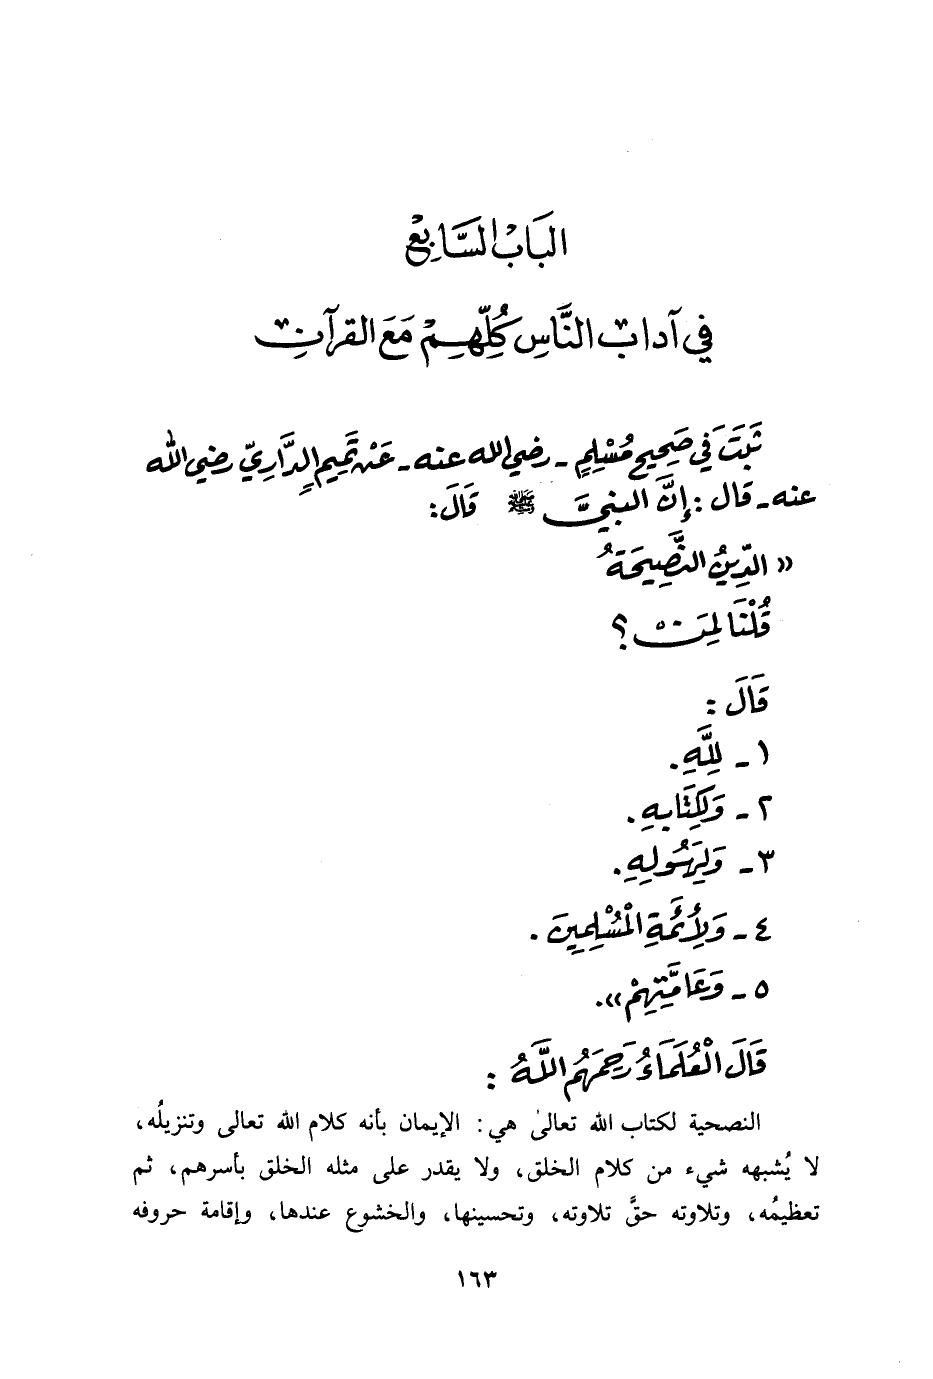 البَابُ السَّابِعُ
في آداب النَّاسِ كُلِّهِمْ مَعَ القرآنِ
ثَبَتَ في صَحِيحِ مُسْلِمٍ ـ رضي الله عنه ـ عَنْ تَمِيمٍ الدَّارِيِّ رضي الله
عنه ـ قال : إِنَّ النبيَّ ﷺ قَالَ :
« الدِّينُ النَّصِيحَةُ
قُلْنَا لِمَنْ ؟
قَالَ :
١ ـ لِلَّهِ .
٢ ـ وَلِكِتَابِهِ .
٣ ـ وَلِرَسُولِهِ .
٤ ـ وَلِأَئِمَّةِ الْمُسْلِمِينَ .
٥ ـ وَعَامَّتِهِمْ » .
قَالَ الْعُلَمَاءُ رَحِمَهُم اللَّهُ :
النصحية لكتاب الله تعالىٰ هي : الإيمان بأنه كلام الله تعالى وتنزيلُه ،
لا يُشبهه شيء من كلام الخلق ، ولا يقدر على مثله الخلق بأسرهم ، ثم
تعظيمُه ، وتلاوته حقَّ تلاوته ، وتحسينها ، والخشوع عندها ، وإقامة حروفه
١٦٣